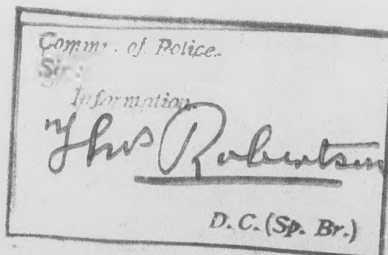 Comm. of Police.
Sir:
Information
Thos Robertson
D. C. (Sp. Br.)